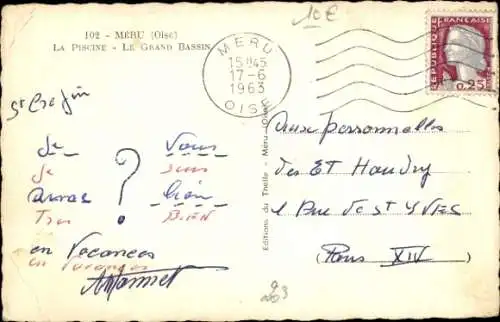 102 - MÉRU (Oise)
LA PISCINE - LE GRAND BASSIN
10€
MERU
15H45
17-6
1963
OISE
REPUBLIQUE FRANÇAISE
0,25
St Crépin
Je Vous
Je suis
bien
Tres BiEN
?
en Vacances
en Vacances
Aux personnelles
des ET Haudry
1 Rue de St YVES
Paris XIV
Editions du Thelle - Méru (Oise)